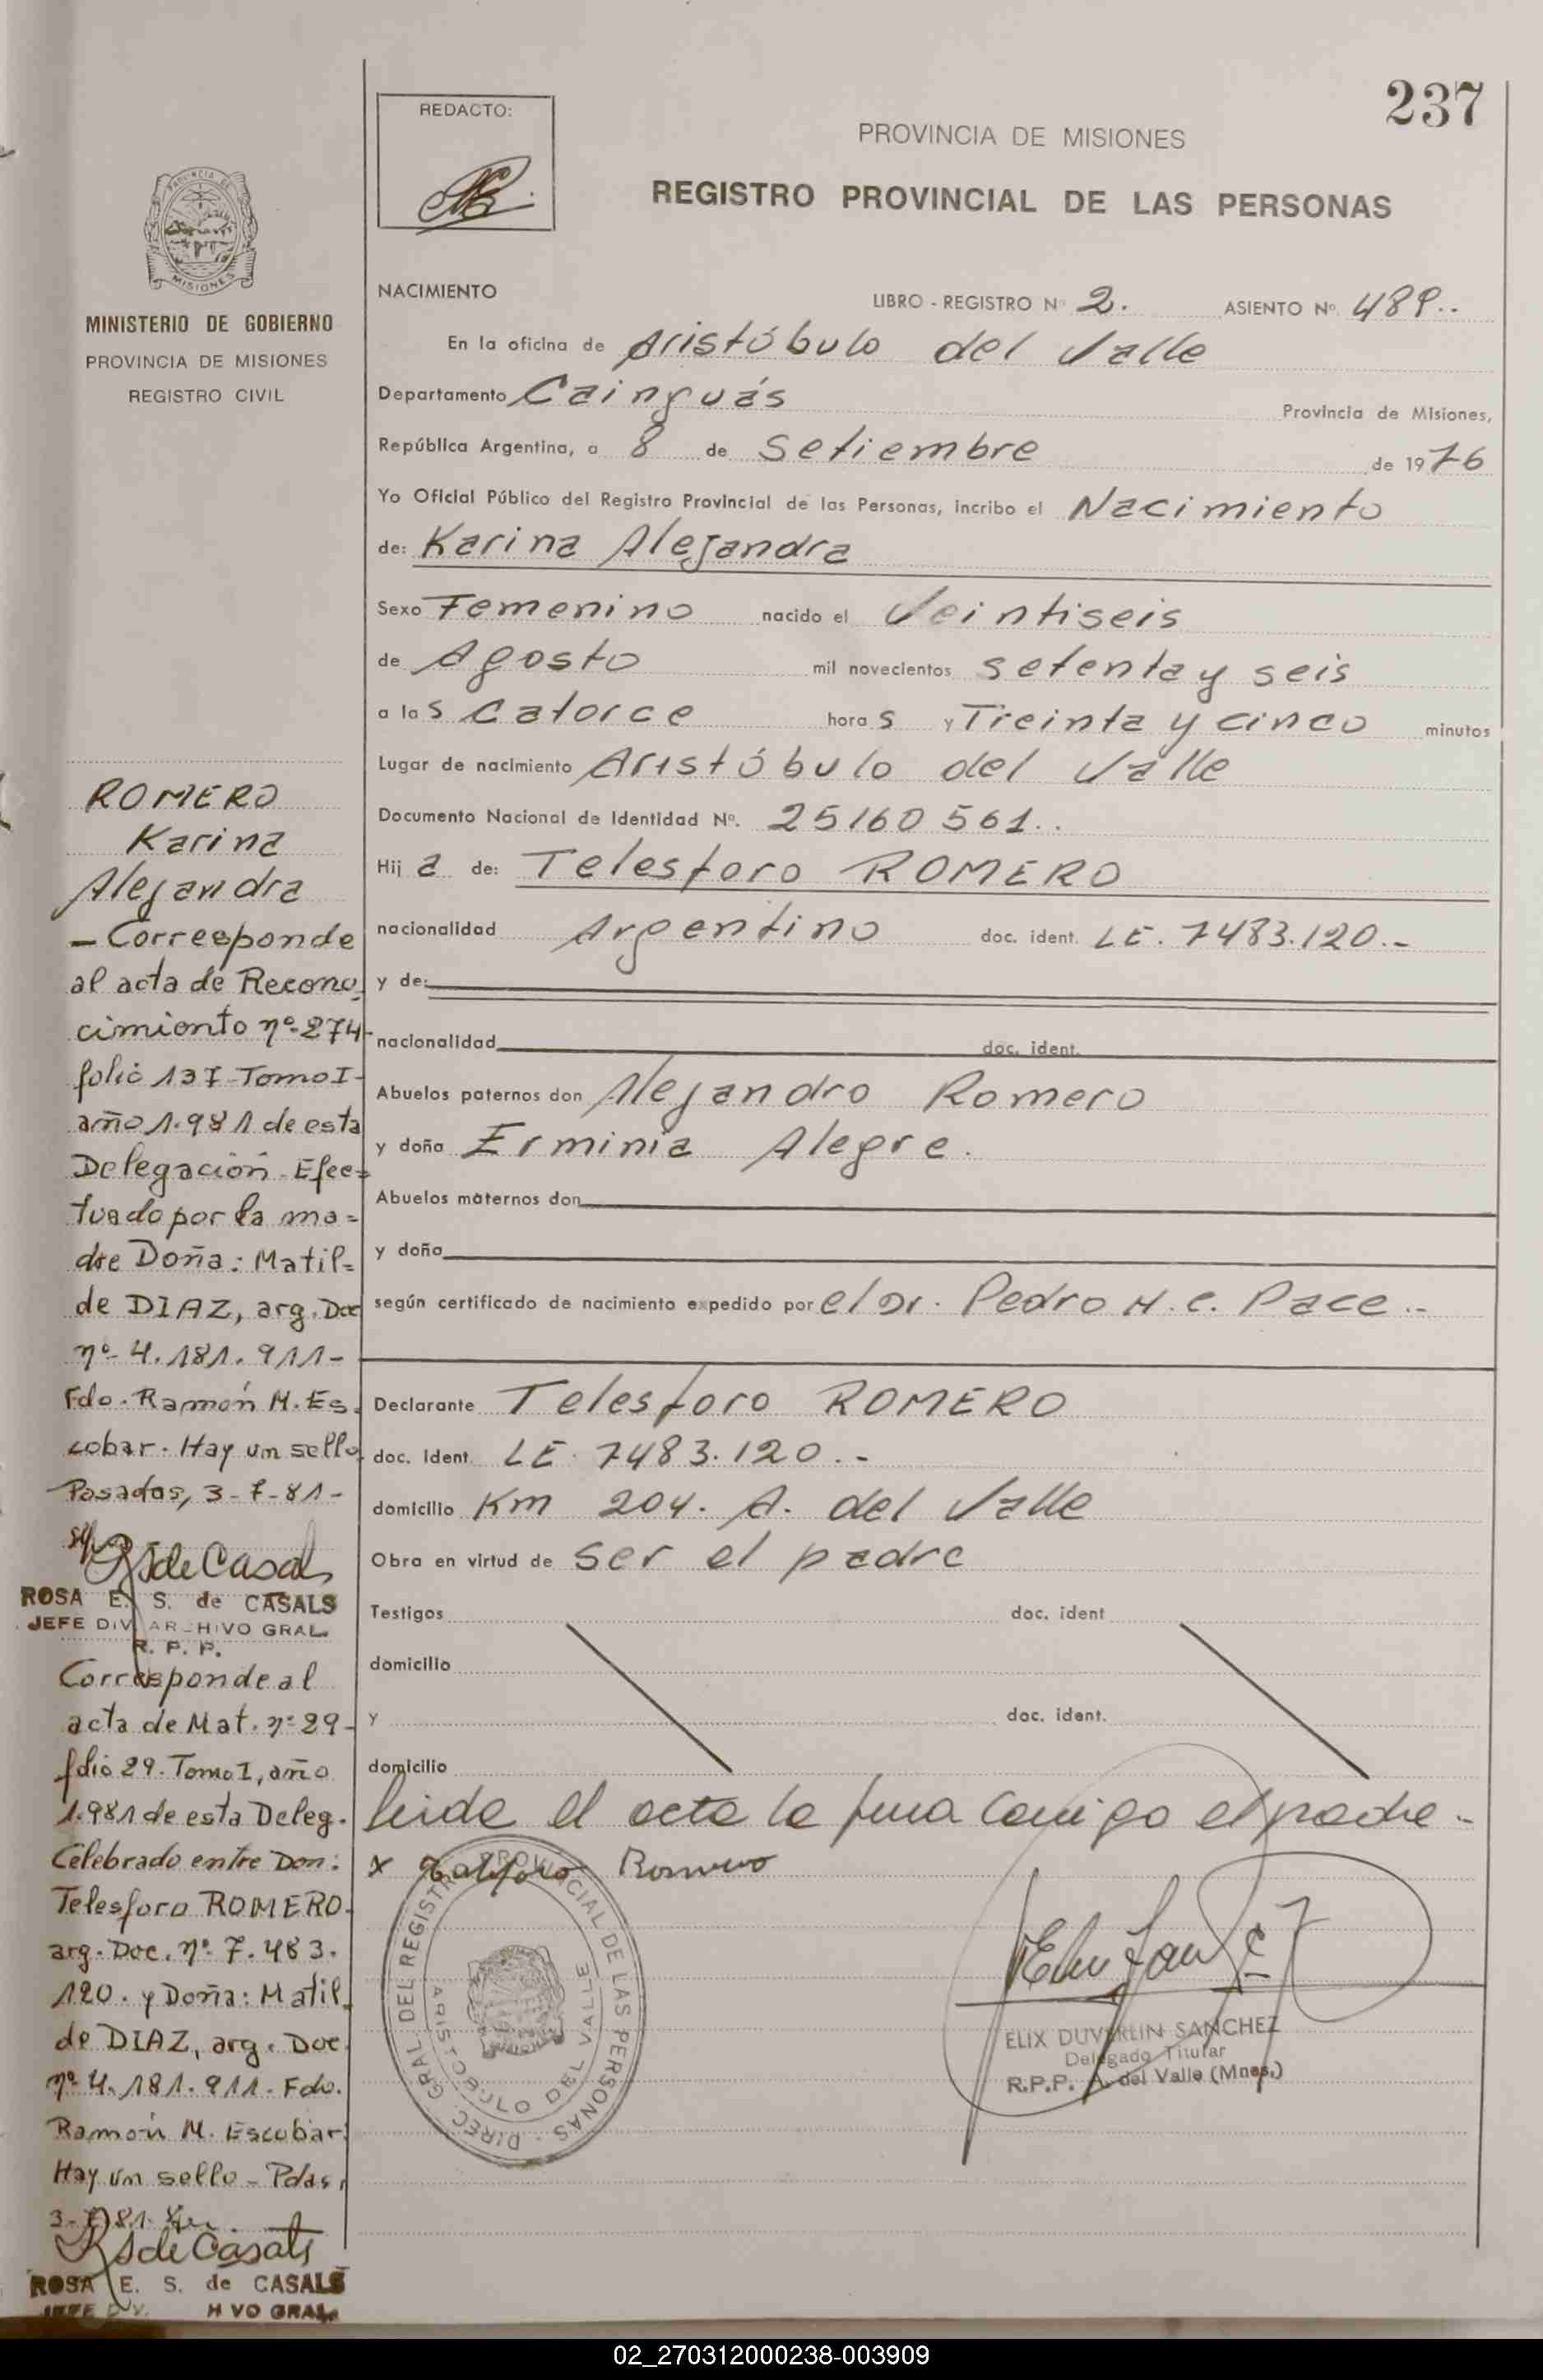 237
REDACTO:
PROVINCIA DE MISIONES
REGISTRO PROVINCIAL DE LAS PERSONAS
PROVINCIA DE
MISIONES
MINISTERIO DE GOBIERNO
PROVINCIA DE MISIONES
REGISTRO CIVIL
NACIMIENTO LIBRO - REGISTRO Nº 2. ASIENTO Nº. 489..
En la oficina de Aristóbulo del Valle
Departamento Cainguás Provincia de Misiones,
República Argentina, a 8 de Setiembre de 1976
Yo Oficial Público del Registro Provincial de las Personas, incribo el Nacimiento
de: Karina Alejandra
Sexo Femenino nacido el Veintiseis
de Agosto mil novecientos setenta y seis
a las catorce horas y Treinta y cinco minutos
Lugar de nacimiento Aristóbulo del Valle
Documento Nacional de Identidad Nº. 25160561..
Hija de: Telesforo ROMERO
nacionalidad Argentino doc. ident. LE. 7483.120.-
y de:
nacionalidad doc. ident.
Abuelos paternos don Alejandro Romero
y doña Erminia Alegre.
Abuelos maternos don
y doña
según certificado de nacimiento expedido por el Dr. Pedro H. C. Pace.-
Declarante Telesforo ROMERO
doc. Ident. LE 7483.120.-
domicilio Km 204. A. del Valle
Obra en virtud de ser el padre
Testigos doc. ident
domicilio
y doc. ident.
domicilio
leida el acta la firma conmigo el padre.-
x Telesforo Romero
DIREC. GRAL. DEL REGISTRO PROVINCIAL DE LAS PERSONAS
ARISTOBULO DEL VALLE
ELIX DUVERLIN SANCHEZ
Delegado Titular
R.P.P. A. del Valle (Mnes.)
ROMERO
Karina
Alejandra
- Corresponde
al acta de Recono
cimiento nº 274-
folio 137 Tomo I-
año 1.981 de esta
Delegación - Efec=
tuado por la ma=
dre Doña: Matil=
de DIAZ, arg. Doc
nº 4.181.911-
Fdo. Ramón M. Es.
cobar. Hay un sello
Posadas, 3-7-81-
RS de Casals
ROSA E. S. de CASALS
JEFE DIV. ARCHIVO GRAL.
R. P. P.
Corresponde al
acta de Mat. nº 29-
folio 29. Tomo I, año
1.981 de esta Deleg.
Celebrado entre Don:
Telesforo ROMERO.
arg. Doc. nº 7.483.
120. y Doña: Matil.
de DIAZ, arg. Doc.
nº 4.181.911. Fdo.
Ramón M. Escobar.
Hay un sello - Pdas,
3-7-81.
RS de Casals
ROSA E. S. de CASALS
JEFE DIV. HIVO GRAL.
02_270312000238-003909